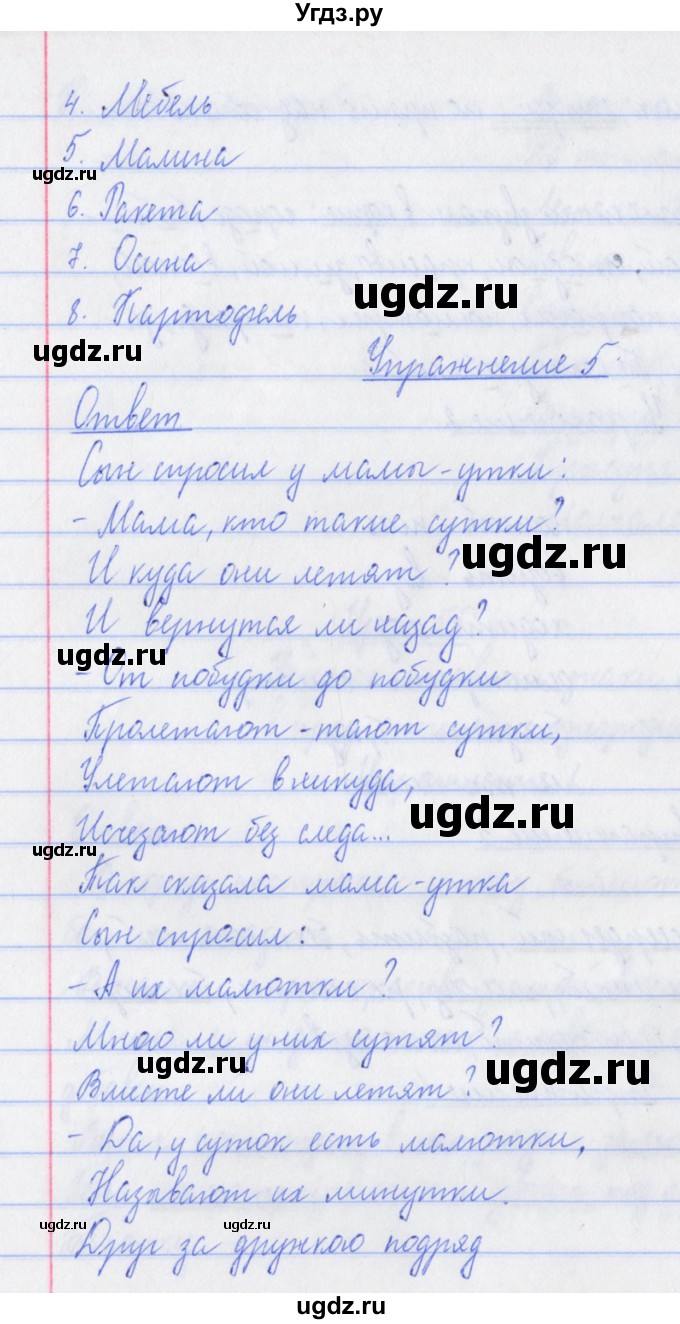 Угдз.ру
4. Мебель
5. Малина
ugdz.ru
6. Ракета
7. Осина
ugdz.ru
8. Картофель
ugdz.ru
Упражнение 5
Ответ
Сын спросил у мамы-утки:
- Мама, кто такие сутки?
ugdz.ru
И куда они летят?
И вернутся ли назад?
ugdz.ru
- От побудки до побудки
Пролетают-тают сутки,
Улетают в никуда,
ugdz.ru
Исчезают без следа...
ugdz.ru
Так сказала мама-утка
Сын спросил:
- А их малютки?
Много ли у них сутят?
ugdz.ru
ugdz.ru
Вместе ли они летят?
- Да, у суток есть малютки,
Называют их минутки.
ugdz.ru
ugdz.ru
Друг за дружкою подряд
ugdz.ru